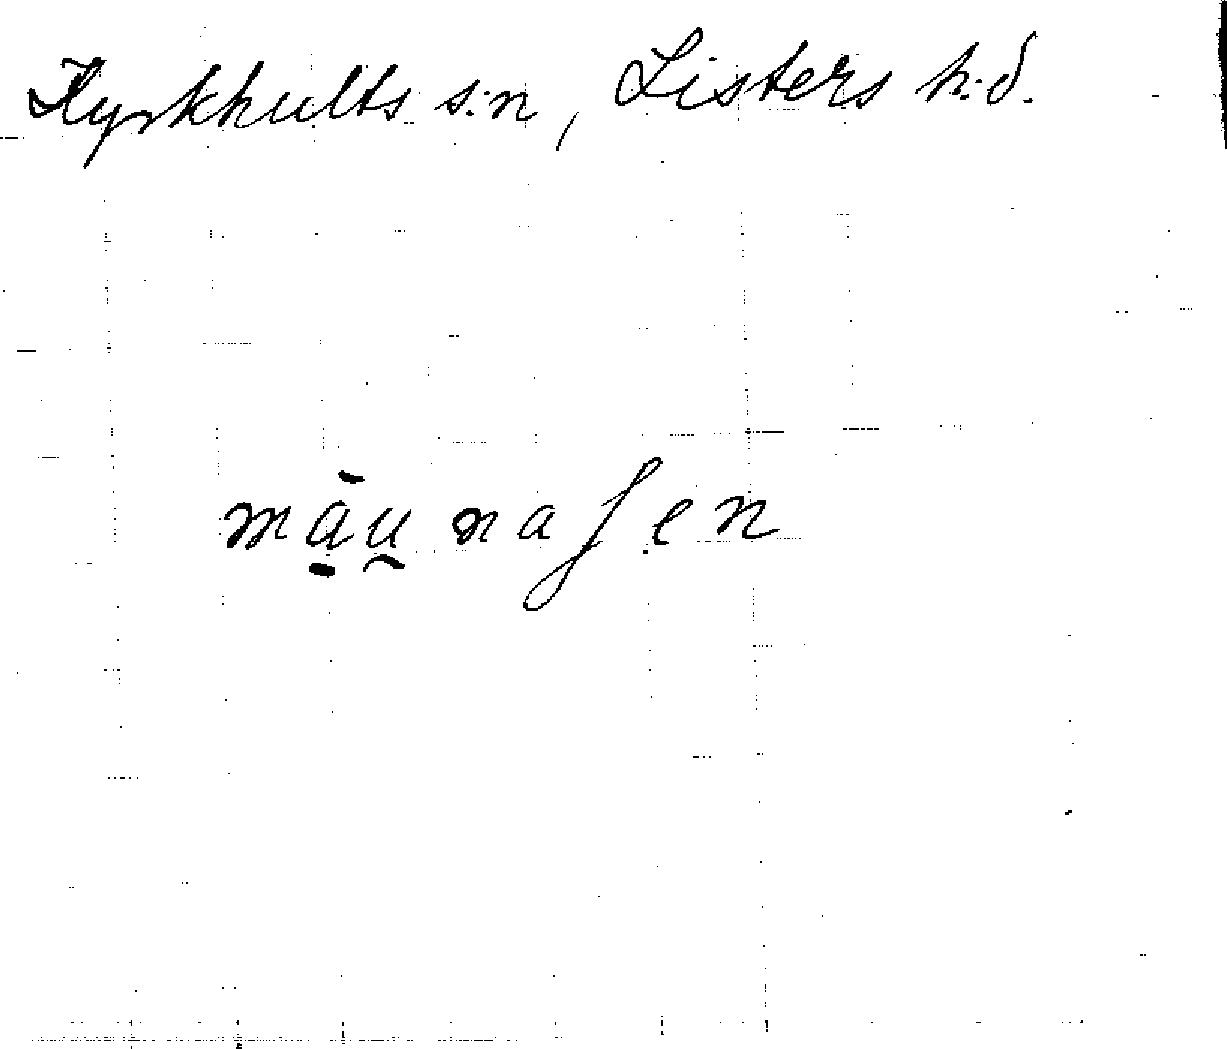 Kyrkhults s:n, Listers h:d.
màu̯naſen